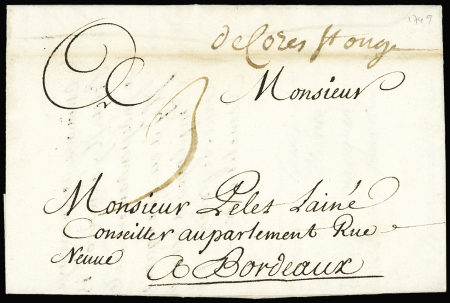 1749
de Cozes st onge
Monsieur
3
Monsieur Pelet Lainé
Conseiller auparlement Rue
Neuue
A Bordeaux